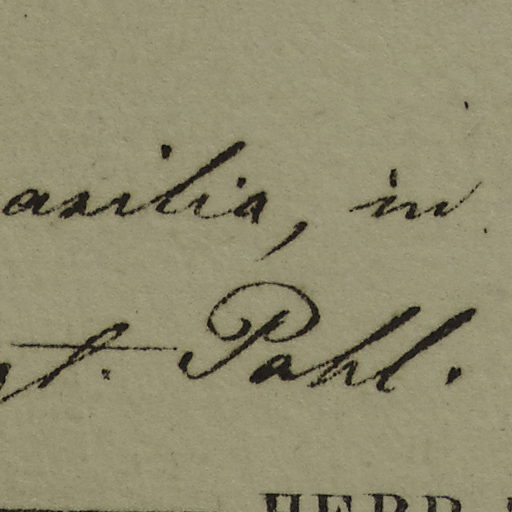 asilia, in
t. Pahl.
HERR